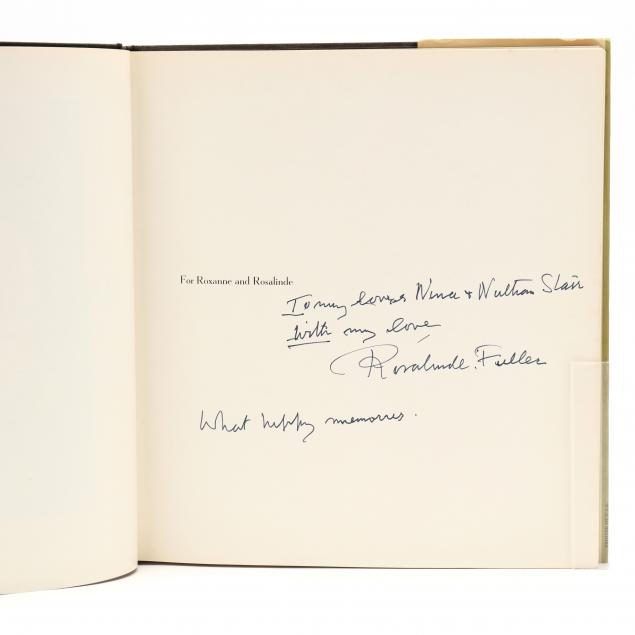 For Roxanne and Rosalinde
To my loves Nina & Nathan Starr
With my love,
Rosalinde Fuller
What happy memories.